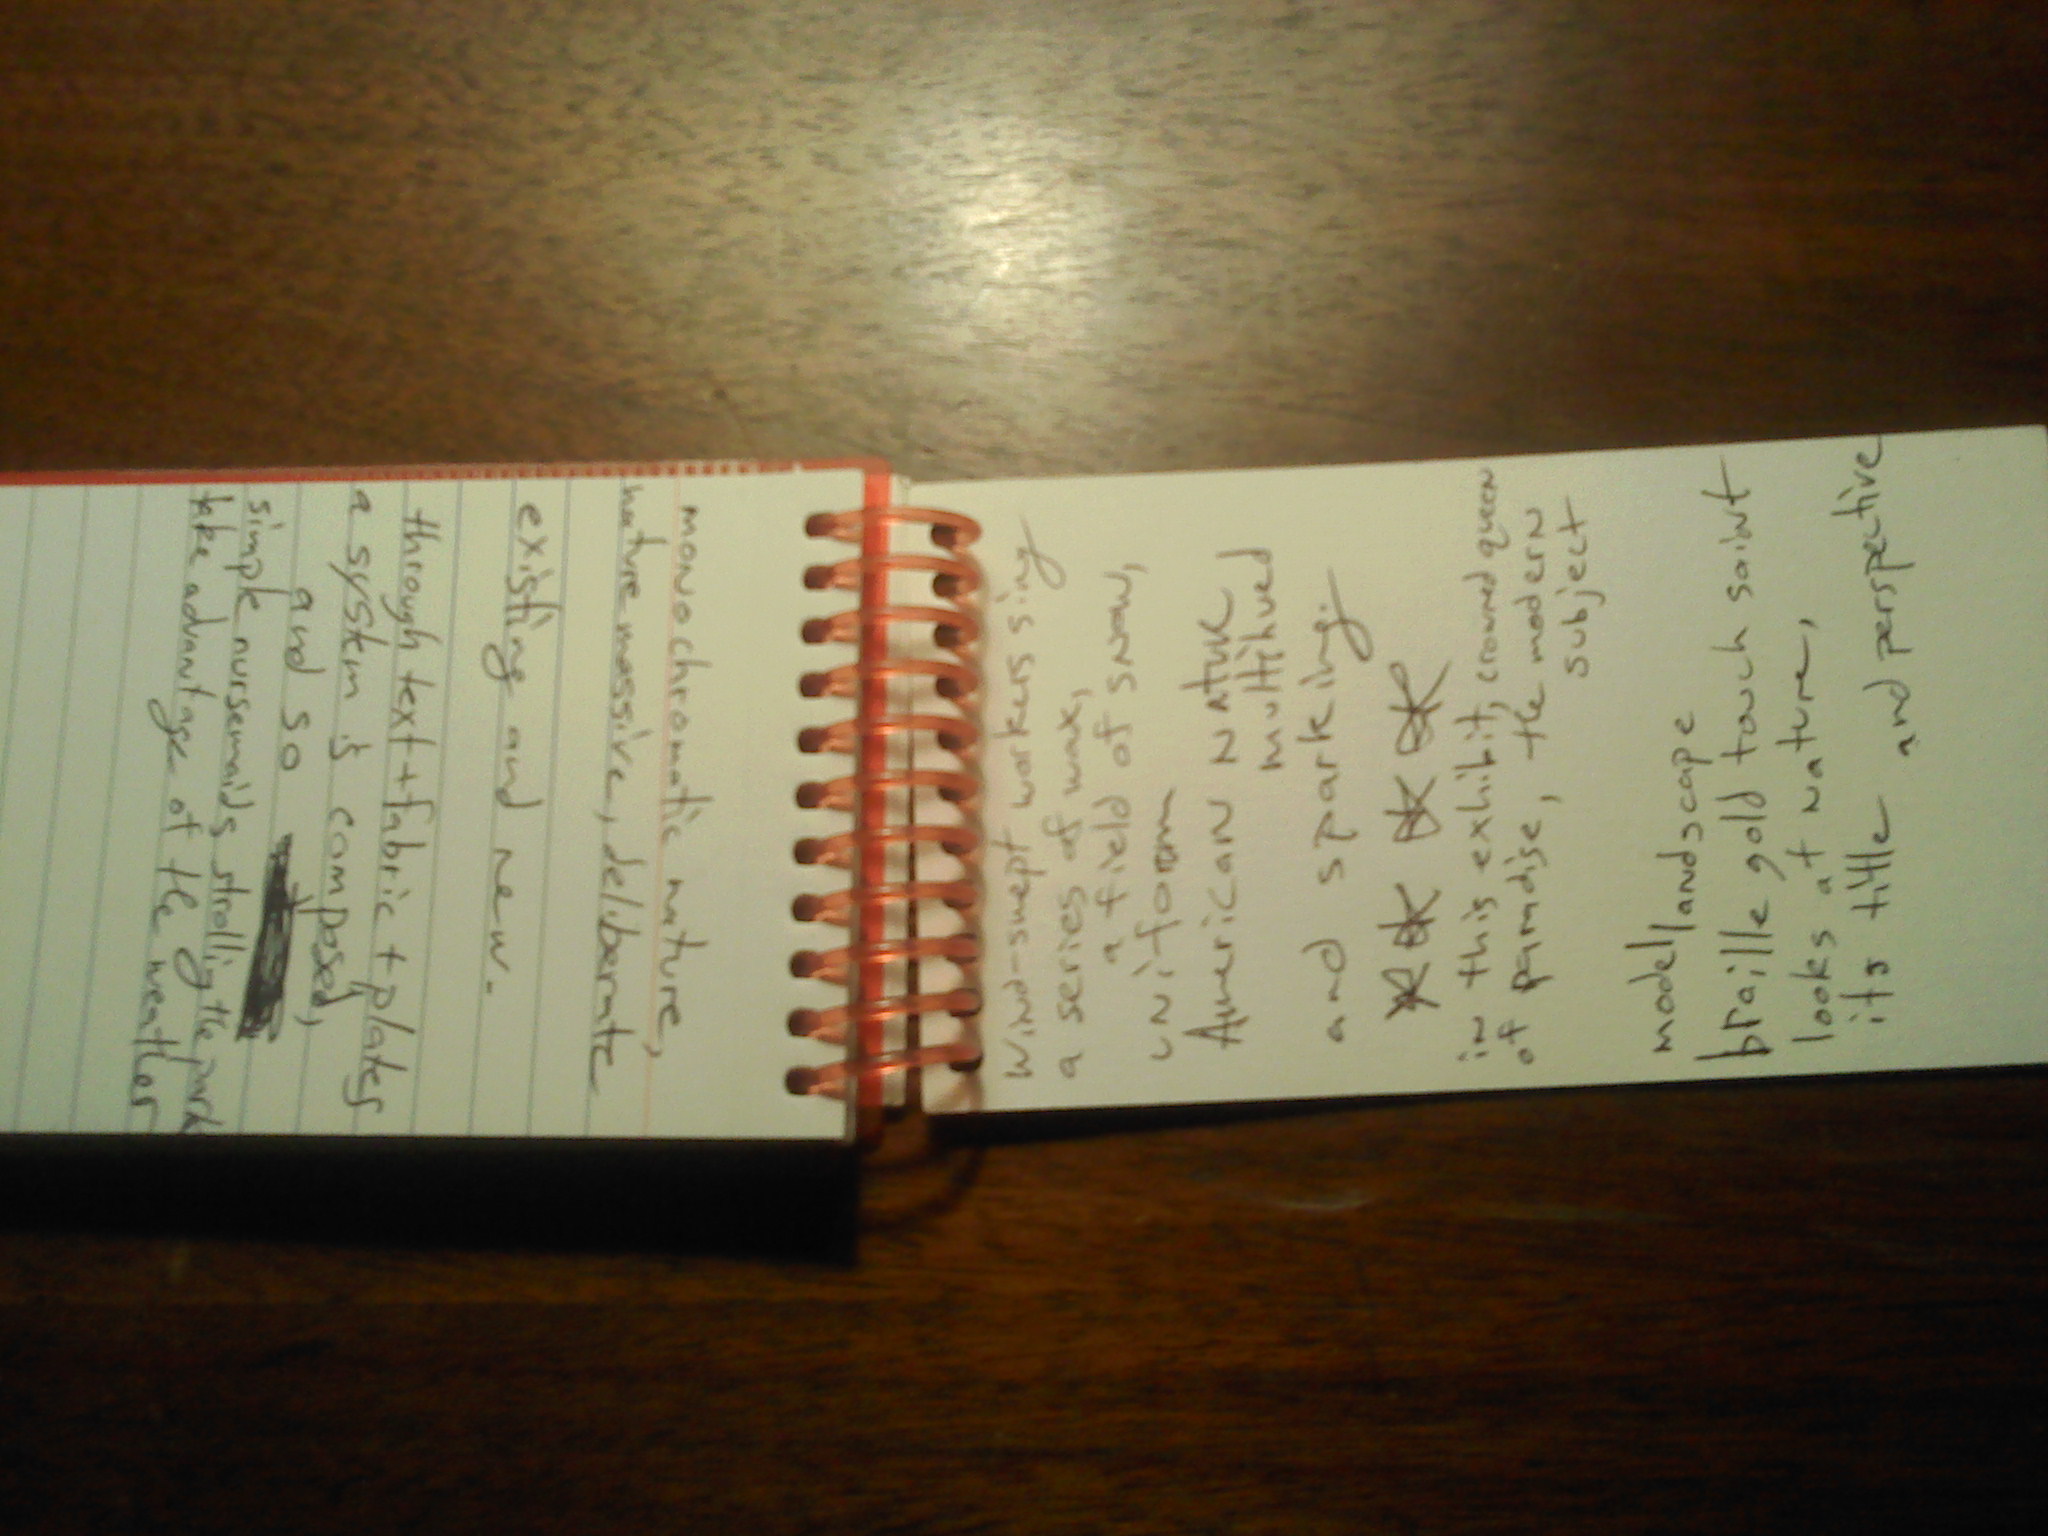 monochromatic nature,
nature massive, deliberate
existing and new.
through text + fabric + plates
a system is composed,
and so
simple nursemaids strolling the park
take advantage of the weather
wind-swept workers sing
a series of wax,
a field of snow,
uniform
American nature
multihued
and sparking.
in this exhibit, crowned queen
of paradise, the modern
subject
model landscape
braille gold touch saint
looks at nature,
its title and perspective